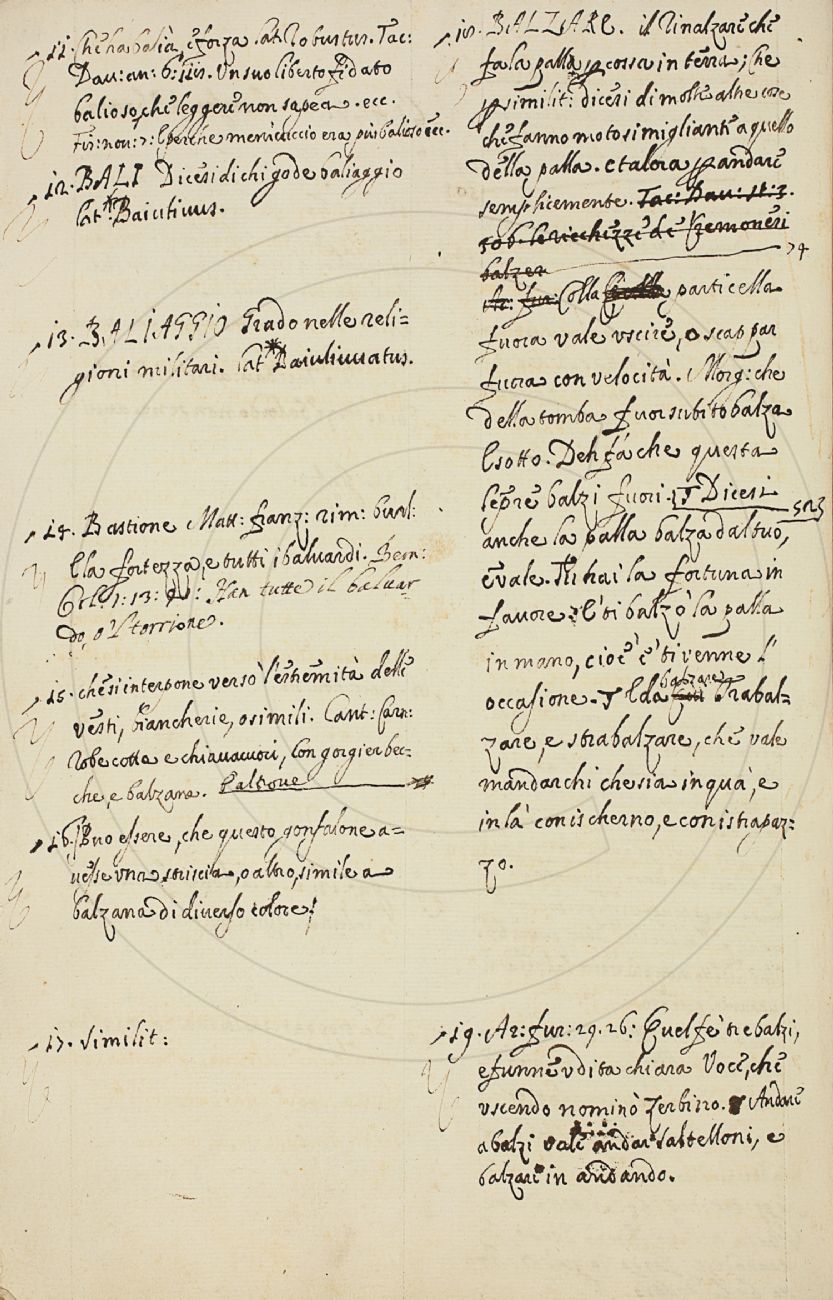 11. Che ha balìa, e forza. Lat. Robustus. Tac:
Dav: an: 6: 115. Un suo liberto fidato
balioso, che leggere non sapea. ecc.
Fir: nov: 7: E perche menicuccio era più balioso ecc.
12. BALI Dicesi di chi gode baliaggio
Lat. Baiulivus.
13. BALIAGGIO Grado nelle reli=
gioni militari. Lat. Baiulivatus.
14. Bastione Matt: franz: rim: burl:
E la fortezza, e tutti i baluardi. Bern:
Orl. 1: 13: Han tutte il baluar
do, o 'l torrione.
15. che si interpone verso l'estremità delle
vesti, biancherie, o simili. Cant: Carn:
Robe cotte e chiavacuori, Con gorgier bec=
che, e balzana.
16. Puo essere, che questo gonfalone a=
vesse una striscia, o altro, simile a
balzana di diverso colore.
17. Similit:
18. BALZARE. il Rinalzare che
fa la palla pcossa in terra; che
p similit: dicesi di molte altre cose
che fanno moto simigliante a quello
della palla. e talora p andare
semplicemente. Tac: Dav: st: 3.
306. le ricchezze de Cremonesi
balzer
Ar: fur: Colla particella
fuora vale uscire, o scappar
fuora con velocità. Morg: che
della tomba fuor subito balza
E sotto. Deh fà che questa
lepre balzi fuori. Dicesi
anche la palla balza dal tuo,
e vale. Tu hai la fortuna in
favore; e ti balzò la palla
in mano, cioè e' ti venne l'
occasione. E da balzare Trabal=
zare, e strabalzare, che vale
mandar chi che sia in quà, e
in là con ischerno, e con istrapaz=
zo.
19. Ar: fur: 29. 26: Quel fè tre balzi,
e funne udita chiara Voce, che
uscendo nominò Zerbino. Andare
a balzi vale andar Saltelloni, e
balzare in andando.